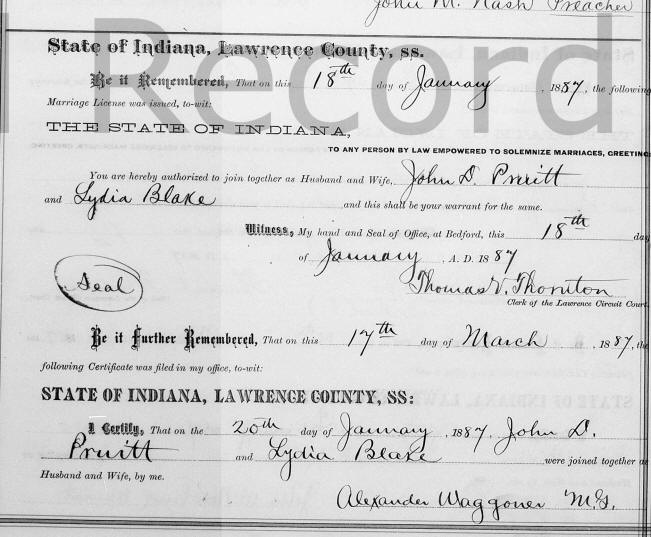 John M. Nash Preacher
Record
State of Indiana, Lawrence County, ss.
Be it Remembered, That on this 18th day of January, 1887, the following
Marriage License was issued, to-wit:
THE STATE OF INDIANA,
TO ANY PERSON BY LAW EMPOWERED TO SOLEMNIZE MARRIAGES, GREETING
You are hereby authorized to join together as Husband and Wife, John D. Pruitt
and Lydia Blake and this shall be your warrant for the same.
Witness, My hand and Seal of Office, at Bedford, this 18th day
of January, A. D. 1887
Seal
Thomas V. Thornton
Clerk of the Lawrence Circuit Court.
Be it Further Remembered, That on this 17th day of March, 1887, the
following Certificate was filed in my office, to-wit:
STATE OF INDIANA, LAWRENCE COUNTY, SS:
I Certify, That on the 20th day of January, 1887, John D.
Pruitt and Lydia Blake were joined together as
Husband and Wife, by me.
Alexander Waggoner M.G.